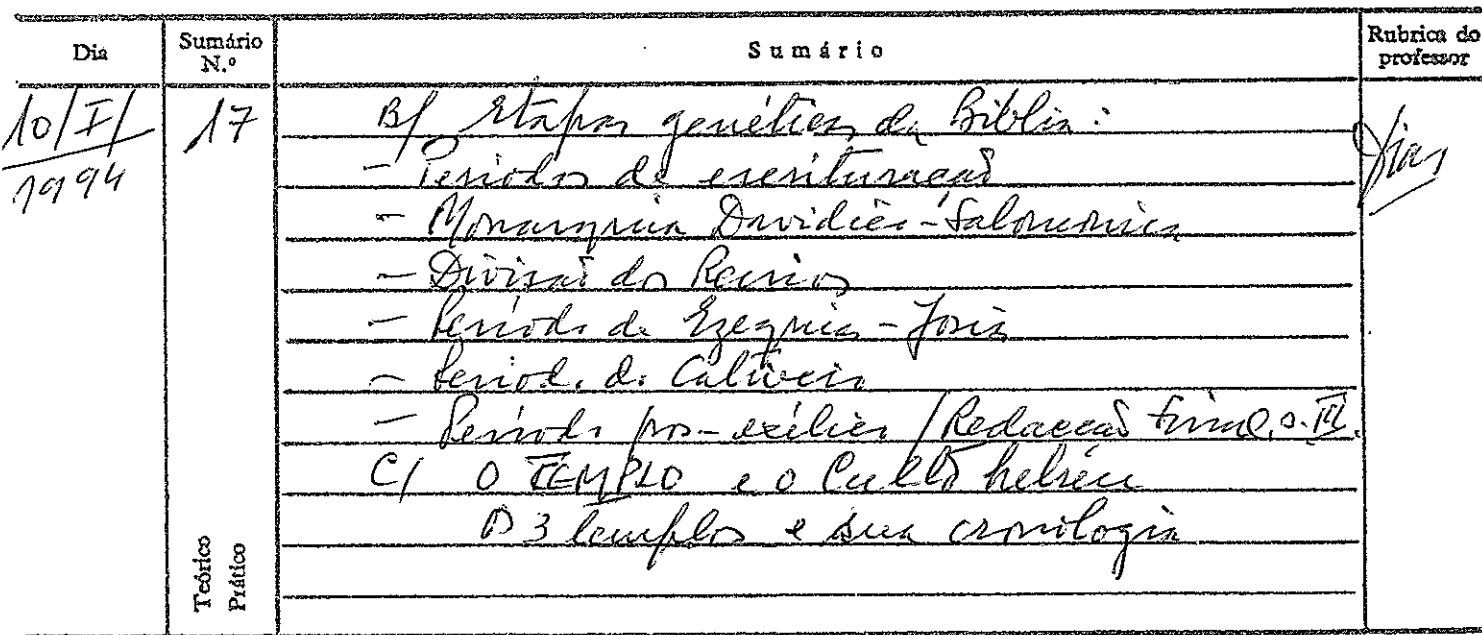 Dia Sumário N.º Sumário Rubrica do professor
10/I/1994 17 B/ Etapas genéticas da Bíblia:
- Períodos de escrituração
- Monarquia Davídico-Salomónica
- Divisão dos Reinos
- Período de Ezequias - Josias
- Período do Cativeiro
- Período pós-exílico / Redacção final
C/ O TEMPLO e o Culto hebreu
Os 3 templos e sua cronologia
Teórico
Prático